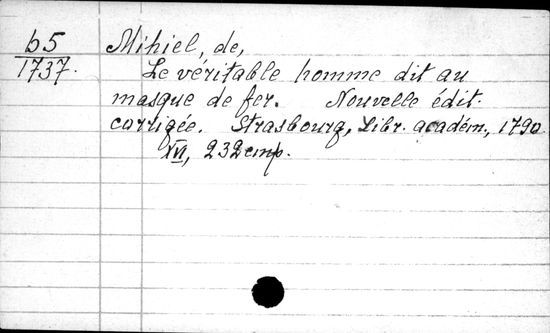 b5
1737.
Mihiel, de,
Le véritable homme dit au
masque de fer. Nouvelle édit.
corrigée. Strasbourg, Libr. académ., 1790
XVI, 232 стр.